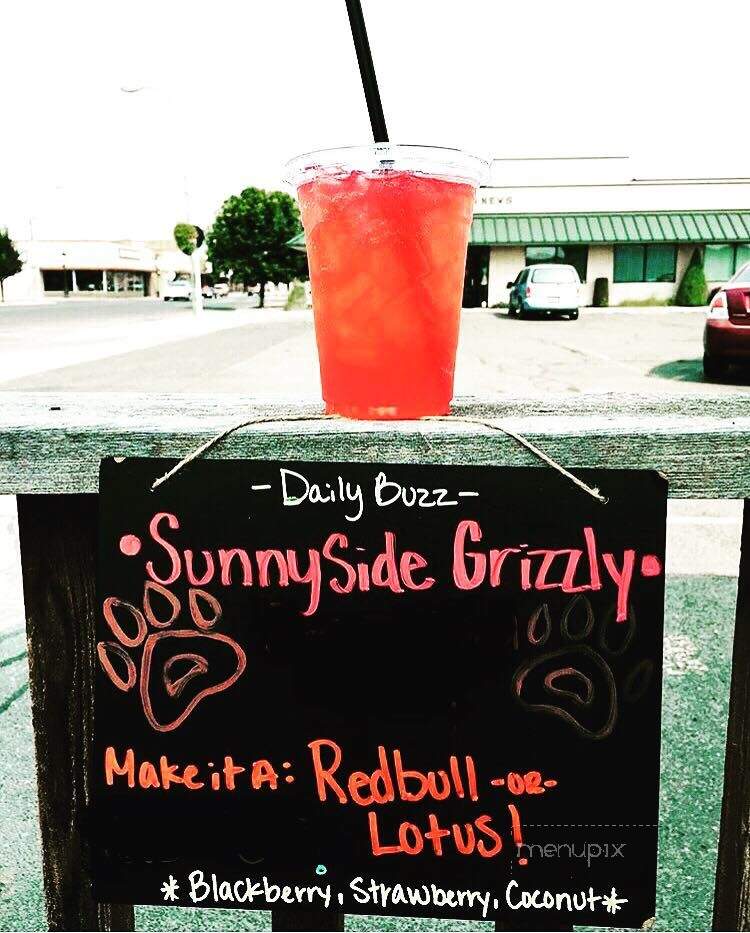 NEWS
- Daily Buzz -
• SunnySide Grizzly •
Make it A: Redbull -OR-
Lotus!
menupix
* Blackberry, Strawberry, Coconut *